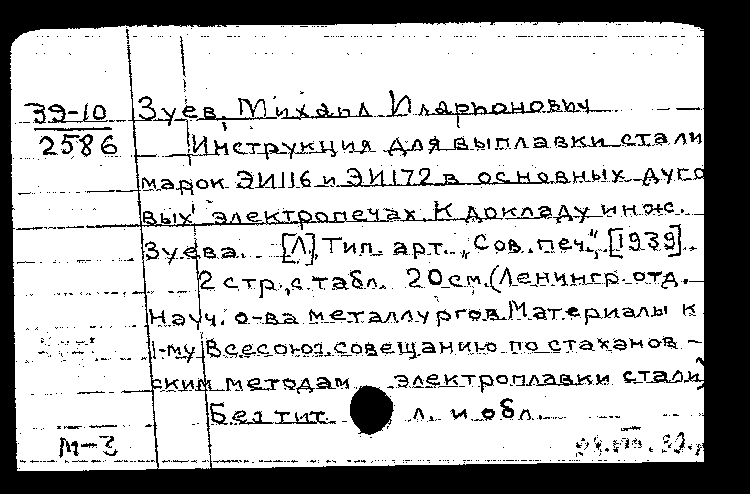 39-10
2586
Зуев, Михаил Иларионович
Инструкция для выплавки стали
марок ЭИ116 и ЭИ172 в основных дуго
вых электропечах. К докладу инж.
Зуева. [Л], Тип. арт. „Сов. печ.", [1939].
2 стр., с табл. 20 см. (Ленингр. отд.
Науч. о-ва металлургов. Материалы к
1-му Всесоюз. совещанию по стаханов-
ским методам электроплавки стали)
Без тит. л. и обл.
М-3